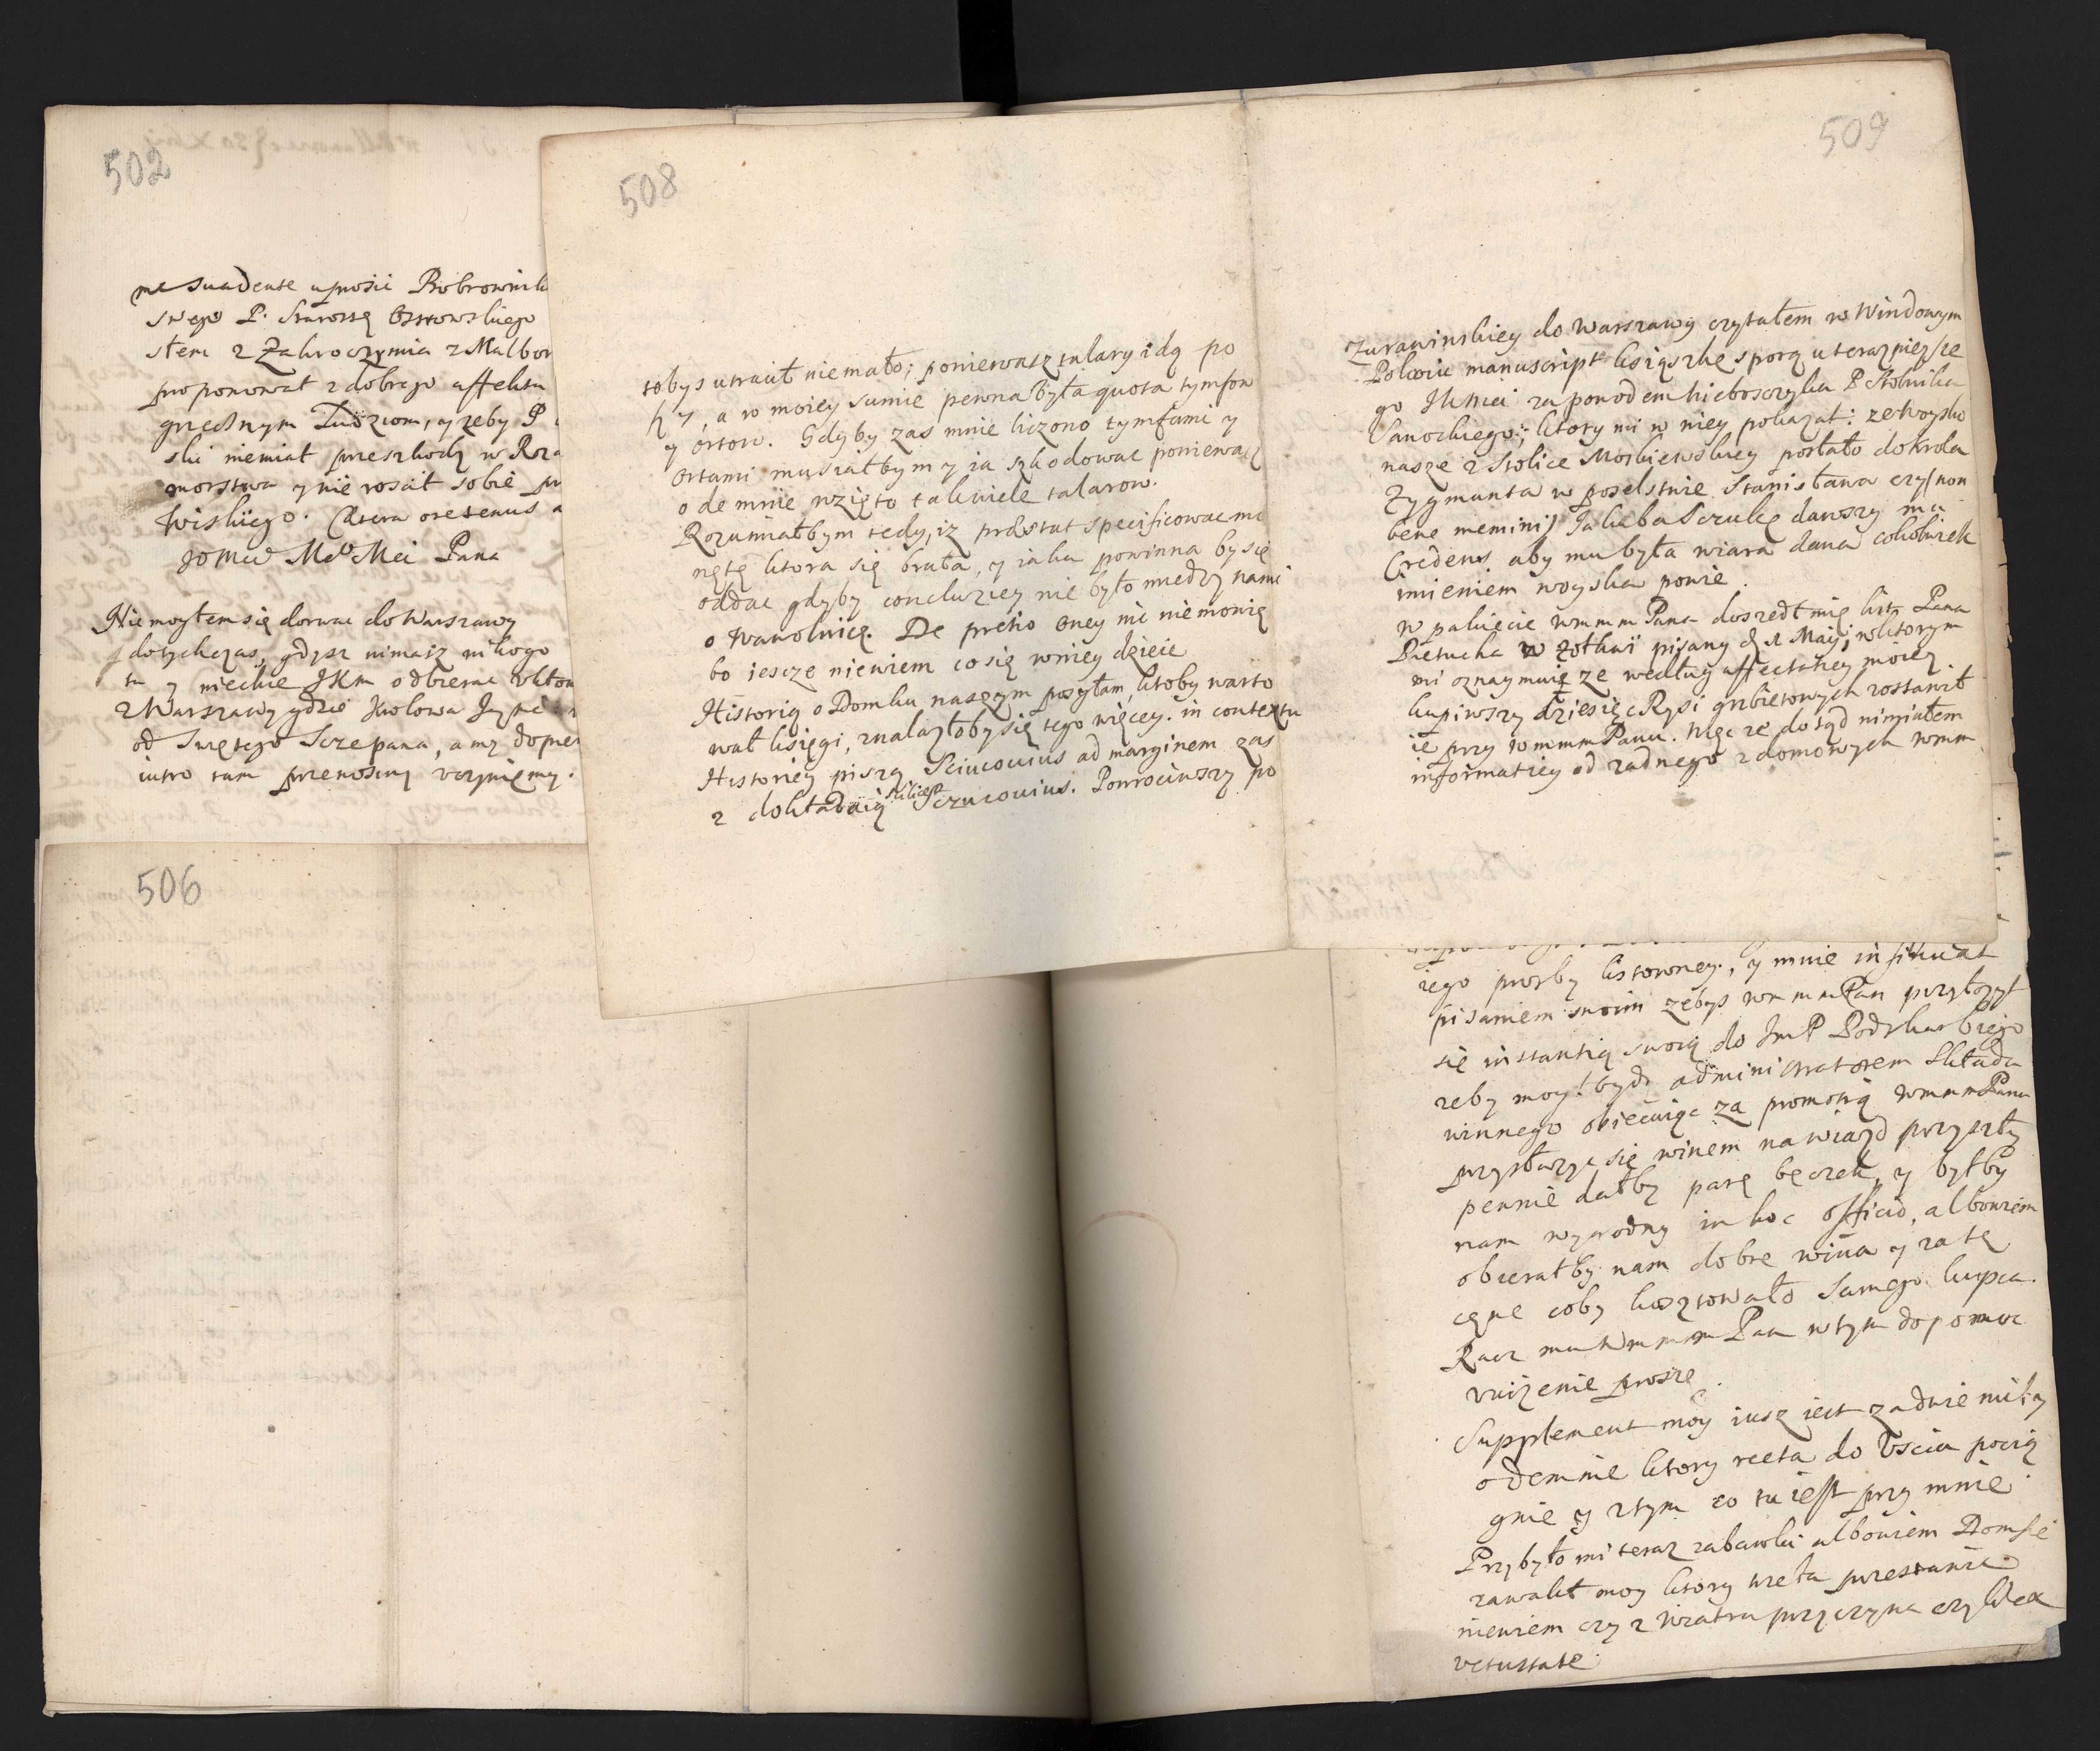 502
me suadente uprosic Bobrownik
swego P. Starostę Ostrowskiego
stem z Zakroczymia z Malbor
proponował z dobrego affektu
grzecznym Ludziom, y zeby P
ski niemiał przeszkody w Roz
morstwa y nie roscił sobie pr
wiskiego. Cætera oretenus
Jomci Mo Mci Pana
Nie mogłem się dorwac do Warszawy
dotychczas, gdysz nimasz nikogo
tu y niechce JKM odbierac
z Warszawy gdzie Krolowa Jeymc
od Swiętego Sczepana, a my dopier
iutro tam przenosiny vczyniemy.
506
508
tobys utracił niemało; poniewasz talary idą po
h 7, a w moiey sumie pewna była quota tymfow
y ortow. Gdyby zas mnie liczono tymfami y
ortami musiałbym y ia szkodowac poniewasz
odemnie wzięto takwiele talarow.
Rozumiałbym tedy, iz præstat specificowac mo
netę ktora się brała, y iaka powinna by się
oddac gdyby concluziey nie było miedzy nami
o Wawolnicę. De pretio oney nic niemowię
bo iescze niewiem co się wniey dzieie
Historią o Domku naszym posyłam, ktoby warto
wał księgi, znalazłoby się tego więcey. in contextu
Historiey piszą Sciucovius ad marginem zas
z dokładaią scilicet Sczucovius. Powrociwszy po
509
Zurawinskiey do Warszawy czytałem w Windowym
Pokoiu manuscript książkę sporą u terazniejsze
go JKMci za powodem nieboszczyka P Stolnika
Sanockiego; ktory mi w niey pokazał: ze woysko
nasze z Stolice Moskiewskiey posłało do krola
Zygmunta w poselstwie Stanisława czy (non
bene memini) Jakuba Sczukę dawszy mu
Credens aby mu była wiara dana cokolwiek
imieniem woyska powie.
W pakiecie wmmm Pana doszedł mię list Pana
Pietucha w Zołkwi pisany d. 11 Maij; w ktorym
mi oznaymuię ze według affectatiey moiey
kupiwszy dziesięc Rysi grzbietowych zostawił
ie przy wmmm Panu. Więc ze dotąd nimiałem
informatiey od zadnego z domowych wmm
iego prozby listowney, y mnie insinuat
pisaniem swoim zebys wmmmPan przyłozył
się instantią swoią do JmP Podskarbiego
zeby mogł bydz administratorem składu
winnego obiecuiąc za promotią wmmmPana
przysłuzyc się winem na wiazd przyszły
pewnie dałby parę beczek, y byłby
nam wygodny in hoc officio, albowiem
obierałby nam dobre wina y za tę
cęne coby kosztowało samego kupca.
Racz mu Wmmm Pan wtym dopomoc
vnizenie proszę.
Supplement moy iusz iest zadwie mili
odemnie ktory recta do Uscia pocią
gnie y z tym co tu iest przy mnie.
Przybyło mi teraz zabawki albowiem Dom sie
zawalił moy ktory
niewiem czy z Wiatru przyczyna czyli ex
vetustate.